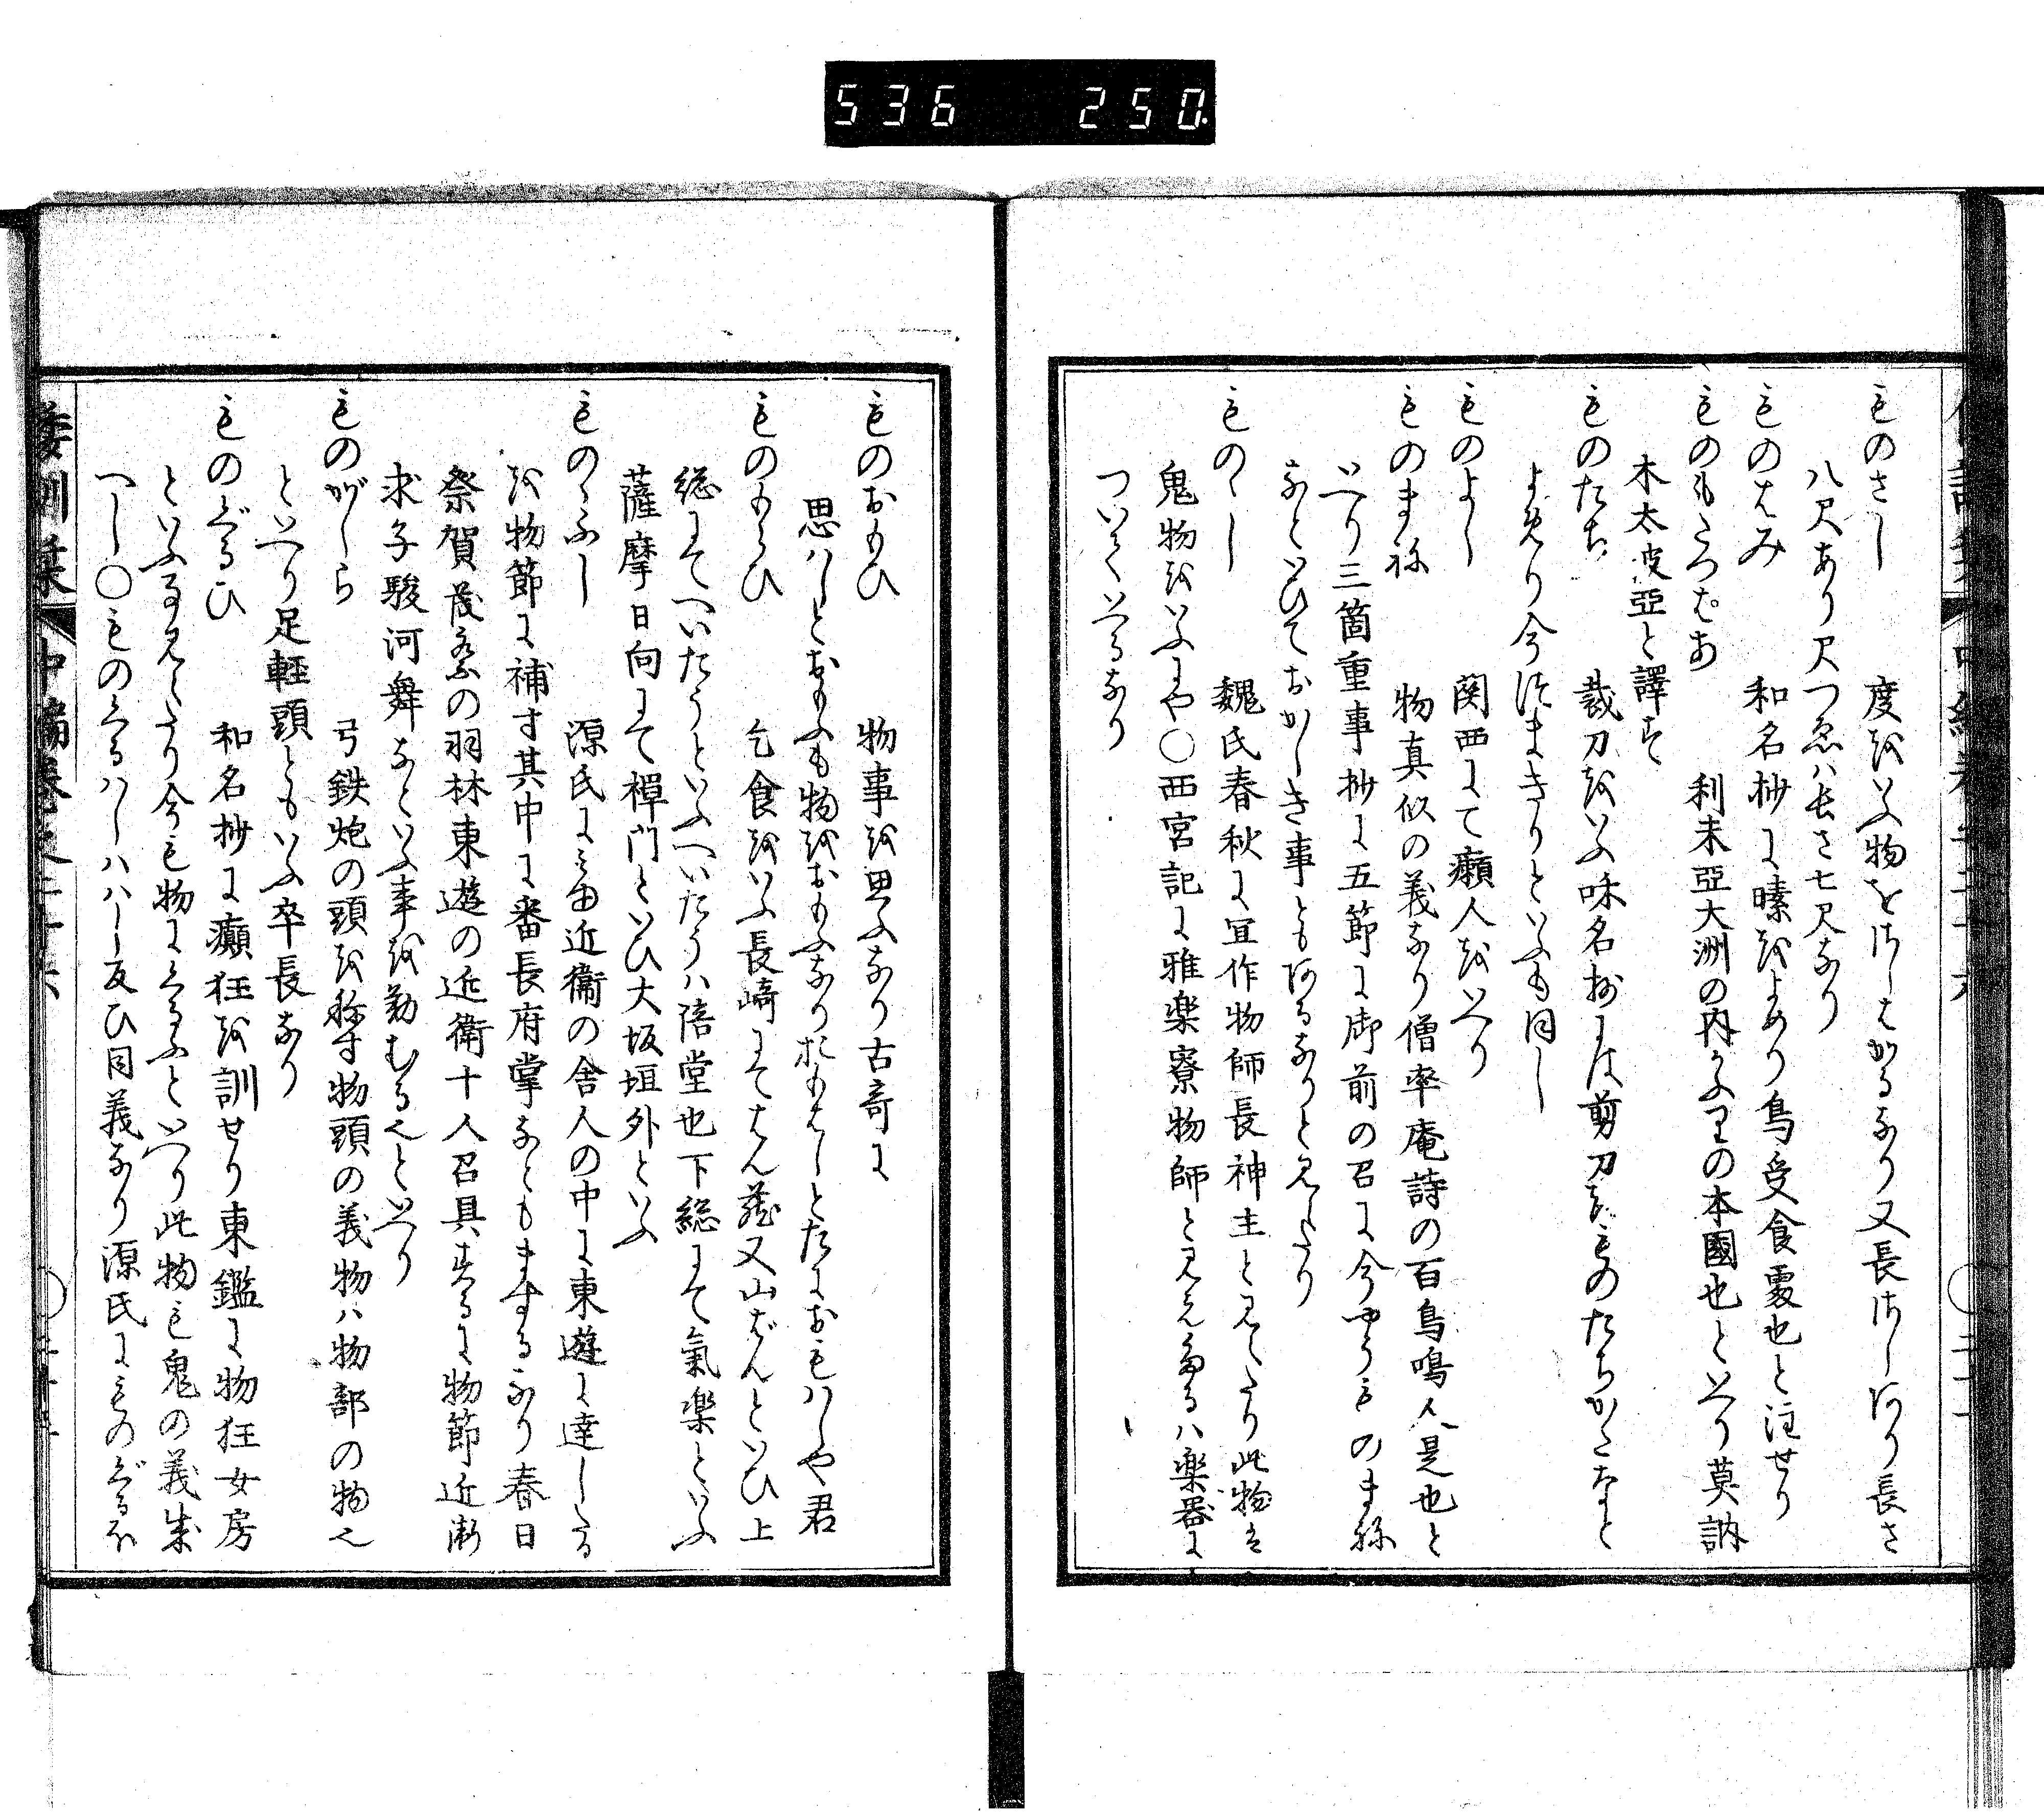 536 250
ものさし 度をいふ物をはしはかるなり又長はしあり長さ
八尺あり尺つゑハ長さ七尺なり
ものはみ 和名抄に嗉をよめり鳥受食處也と注せり
ものもたつはあ 利未亜大洲の内の本國也といへり莫訥
木太皮亞と譯す
ものたち 裁刀をいふ和名抄には剪刀をものたちかたなと
よめり今はまきりといふも同し
ものよし 関西にて癩人をいへり
ものまね 物真似の義なり僧率庵詩の百鳥鳴人是也と
いへり三箇重事抄に五節に御前の召に今やうものまね
なといひておかしき事ともあるなりと見えたり
ものゝし 魏氏春秋に宜作物師長神主と見えたり此物は
鬼物をいふにや〇西宮記に雅楽寮物師と見えたるハ楽器に
ついていへるなり
ものおもひ 物事を思ふなり古哥に
思ハしとおもふも物をおもふなりおもはしとたにおもハしや君
ものもらひ 乞食をいふ長崎にてはん蔵又山ばんといひ上
総にてへいたうといふへいたうハ陪堂也下総にて氣楽といふ
薩摩日向にて禅門といひ大坂垣外といふ
ものゝふし 源氏に近衛の舎人の中に東遊に達したる
を物節に補す其中に番長府掌なともまする也春日
祭賀茂祭の羽林東遊の近衛十人召具するに物節近衛
求子駿河舞なといふ事を勤むる也といへり
ものがしら 弓鉄炮の頭を称す物頭の義物ハ物部の物也
といへり足軽頭ともいふ卒長なり
ものぐるひ 和名抄に癲狂を訓せり東鑑に物狂女房
といふ事見えたり今も物にくるふといへり此物も鬼の義成
へし〇ものくるハしハハし反ひ同義なり源氏にものぐるほ
倭訓栞 中編巻之二十六